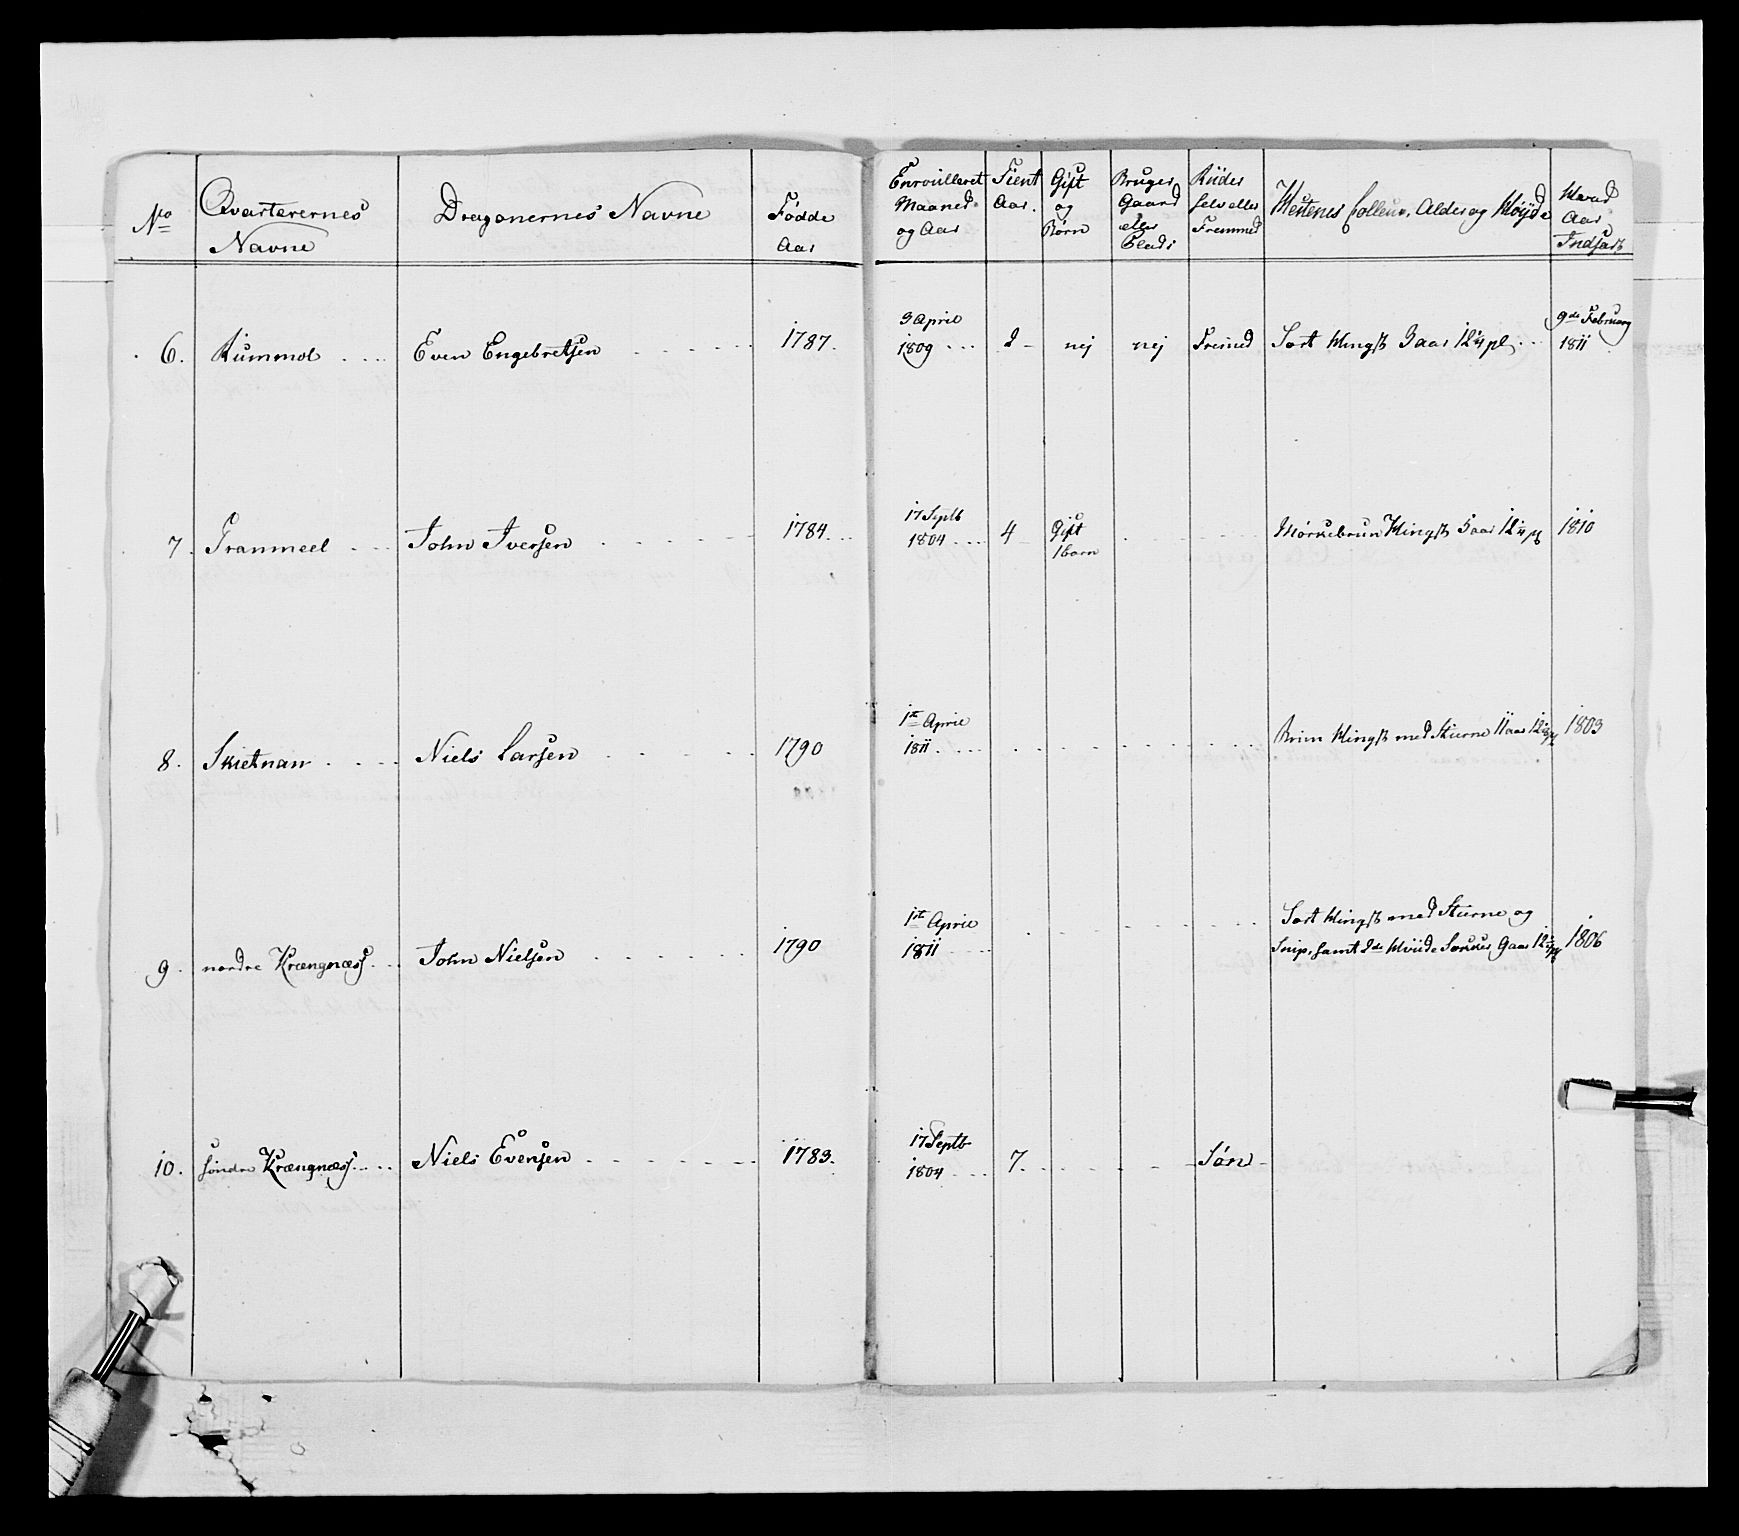 No
Qvarterernes
Navne
Dragonernes Navne
Fødde
Aar
Enroulleret
Maaned
og Aar
Tient
Aar.
Gift
og
Børn
Bruger
Gaard
eller
Plads
Riider
selv eller
Fremmed
Hestenes Colleur, Alder og Høyde
Hvad
Aar
Indsadt
6. Rummol Even Engebretsen 1787. 3 April 1809 2 nej nej Fremed Sort Hingst 3 aar 12 9de Februarj 1811
7. Trammeel John Iversen 1784 17 Septb 1804 4 Gift 1 barn Mørkebrun Hingst 5 aar 12 1810
8. Skietnan Niels Larsen 1790 1st April 1811 Hingst med Stierne 11 aar 12 1803
9. nordre Krængnæss John Nielsen 1790 1st April 1811 Sort Hingst med Stierne og
Snip, samt 2de Hviide Sokker 9 aar 12 1806
10. søndre Krængnæss Niels Evensen 1783. 17 Septb 1804 7. Søn